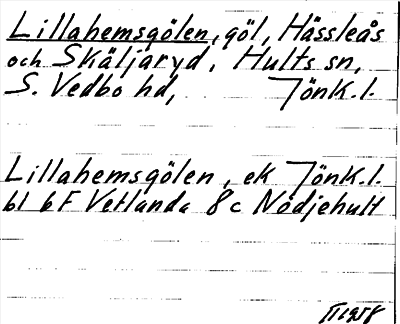 Lillahemsgölen, göl, Hässleås
och Skäljaryd, Hults sn,
S. Vedbo hd, Jönk. l.
Lillahemsgölen, ek Jönk. l.
bl 6F Vetlanda 8c Nödjehult
1958